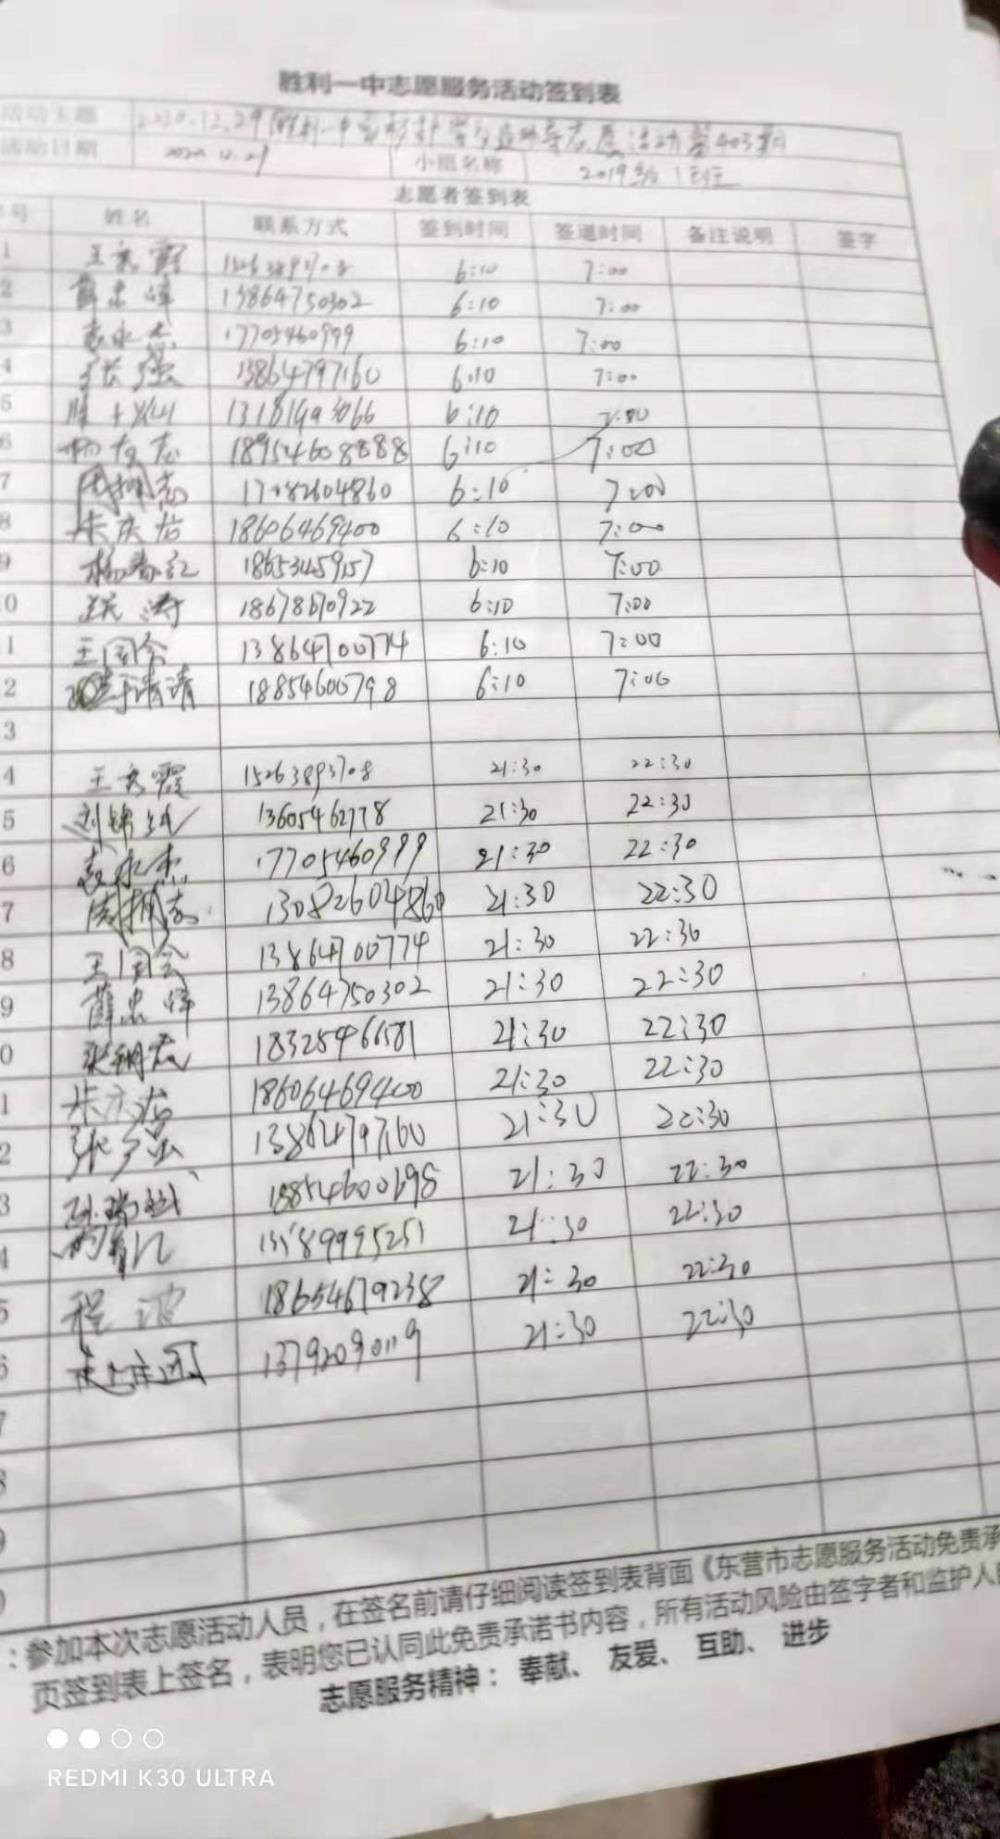 胜利一中志愿服务活动签到表
活动主题 2020.12.29胜利一中 志愿活动第403期
活动日期 2020.12.29 小组名称 2019级1班
志愿者签到表
号 姓名 联系方式 签到时间 签退时间 备注说明 签字
1 王秀霞 15263893708 6:10 7:00
2 薛忠峰 13864750302 6:10 7:00
3 袁永杰 17705460999 6:10 7:00
4 张强 13864797160 6:10 7:00
5 6:10 7:00
6 杨友志 18954608888 6:10 7:00
7 6:10 7:00
8 朱庆岩 18606469400 6:10 7:00
9 杨春红 18653459157 6:10 7:00
0 18678670922 6:10 7:00
1 王国会 13864700774 6:10 7:00
2 清清 18854600798 6:10 7:00
3
4 王秀霞 15263893708 21:30 22:30
5 刘锦 13605462778 21:30 22:30
6 袁永杰 17705460999 21:30 22:30
7 13082604860 21:30 22:30
8 王国会 13864700774 21:30 22:30
9 薛忠峰 13864750302 21:30 22:30
0 21:30 22:30
1 朱庆岩 18606469400 21:30 22:30
2 张强 13864797160 21:30 22:30
3 孙瑞斌 21:30 22:30
4 21:30 22:30
5 程波 18654679238 21:30 22:30
6 13792090119 21:30 22:30
7
8
9
0
：参加本次志愿活动人员，在签名前请仔细阅读签到表背面《东营市志愿服务活动免责承
页签到表上签名，表明您已认同此免责承诺书内容，所有活动风险由签字者和监护人
志愿服务精神：奉献、友爱、互助、进步
REDMI K30 ULTRA